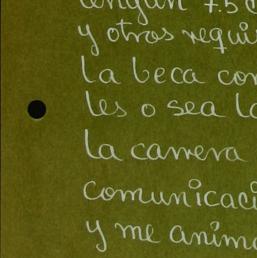 tengan 7.5 
y otros requi
la beca con
les o sea la
la carrera
comunicaci
y me anima